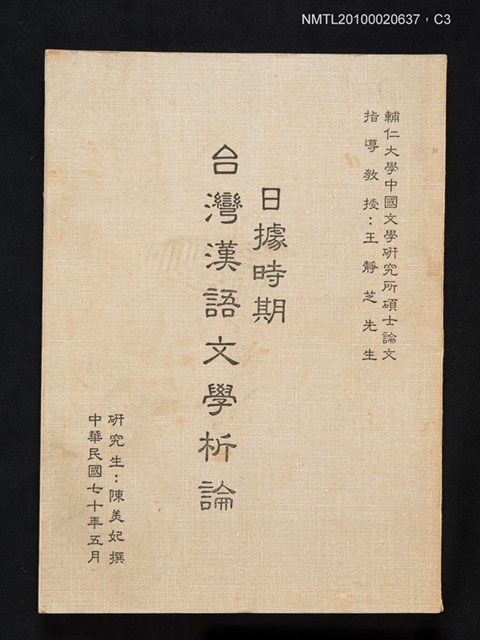 NMTL20100020637，C3
輔仁大學中國文學研究所碩士論文
指導教授：王靜芝先生
日據時期
台灣漢語文學析論
研究生：陳美妃撰
中華民國七十年五月